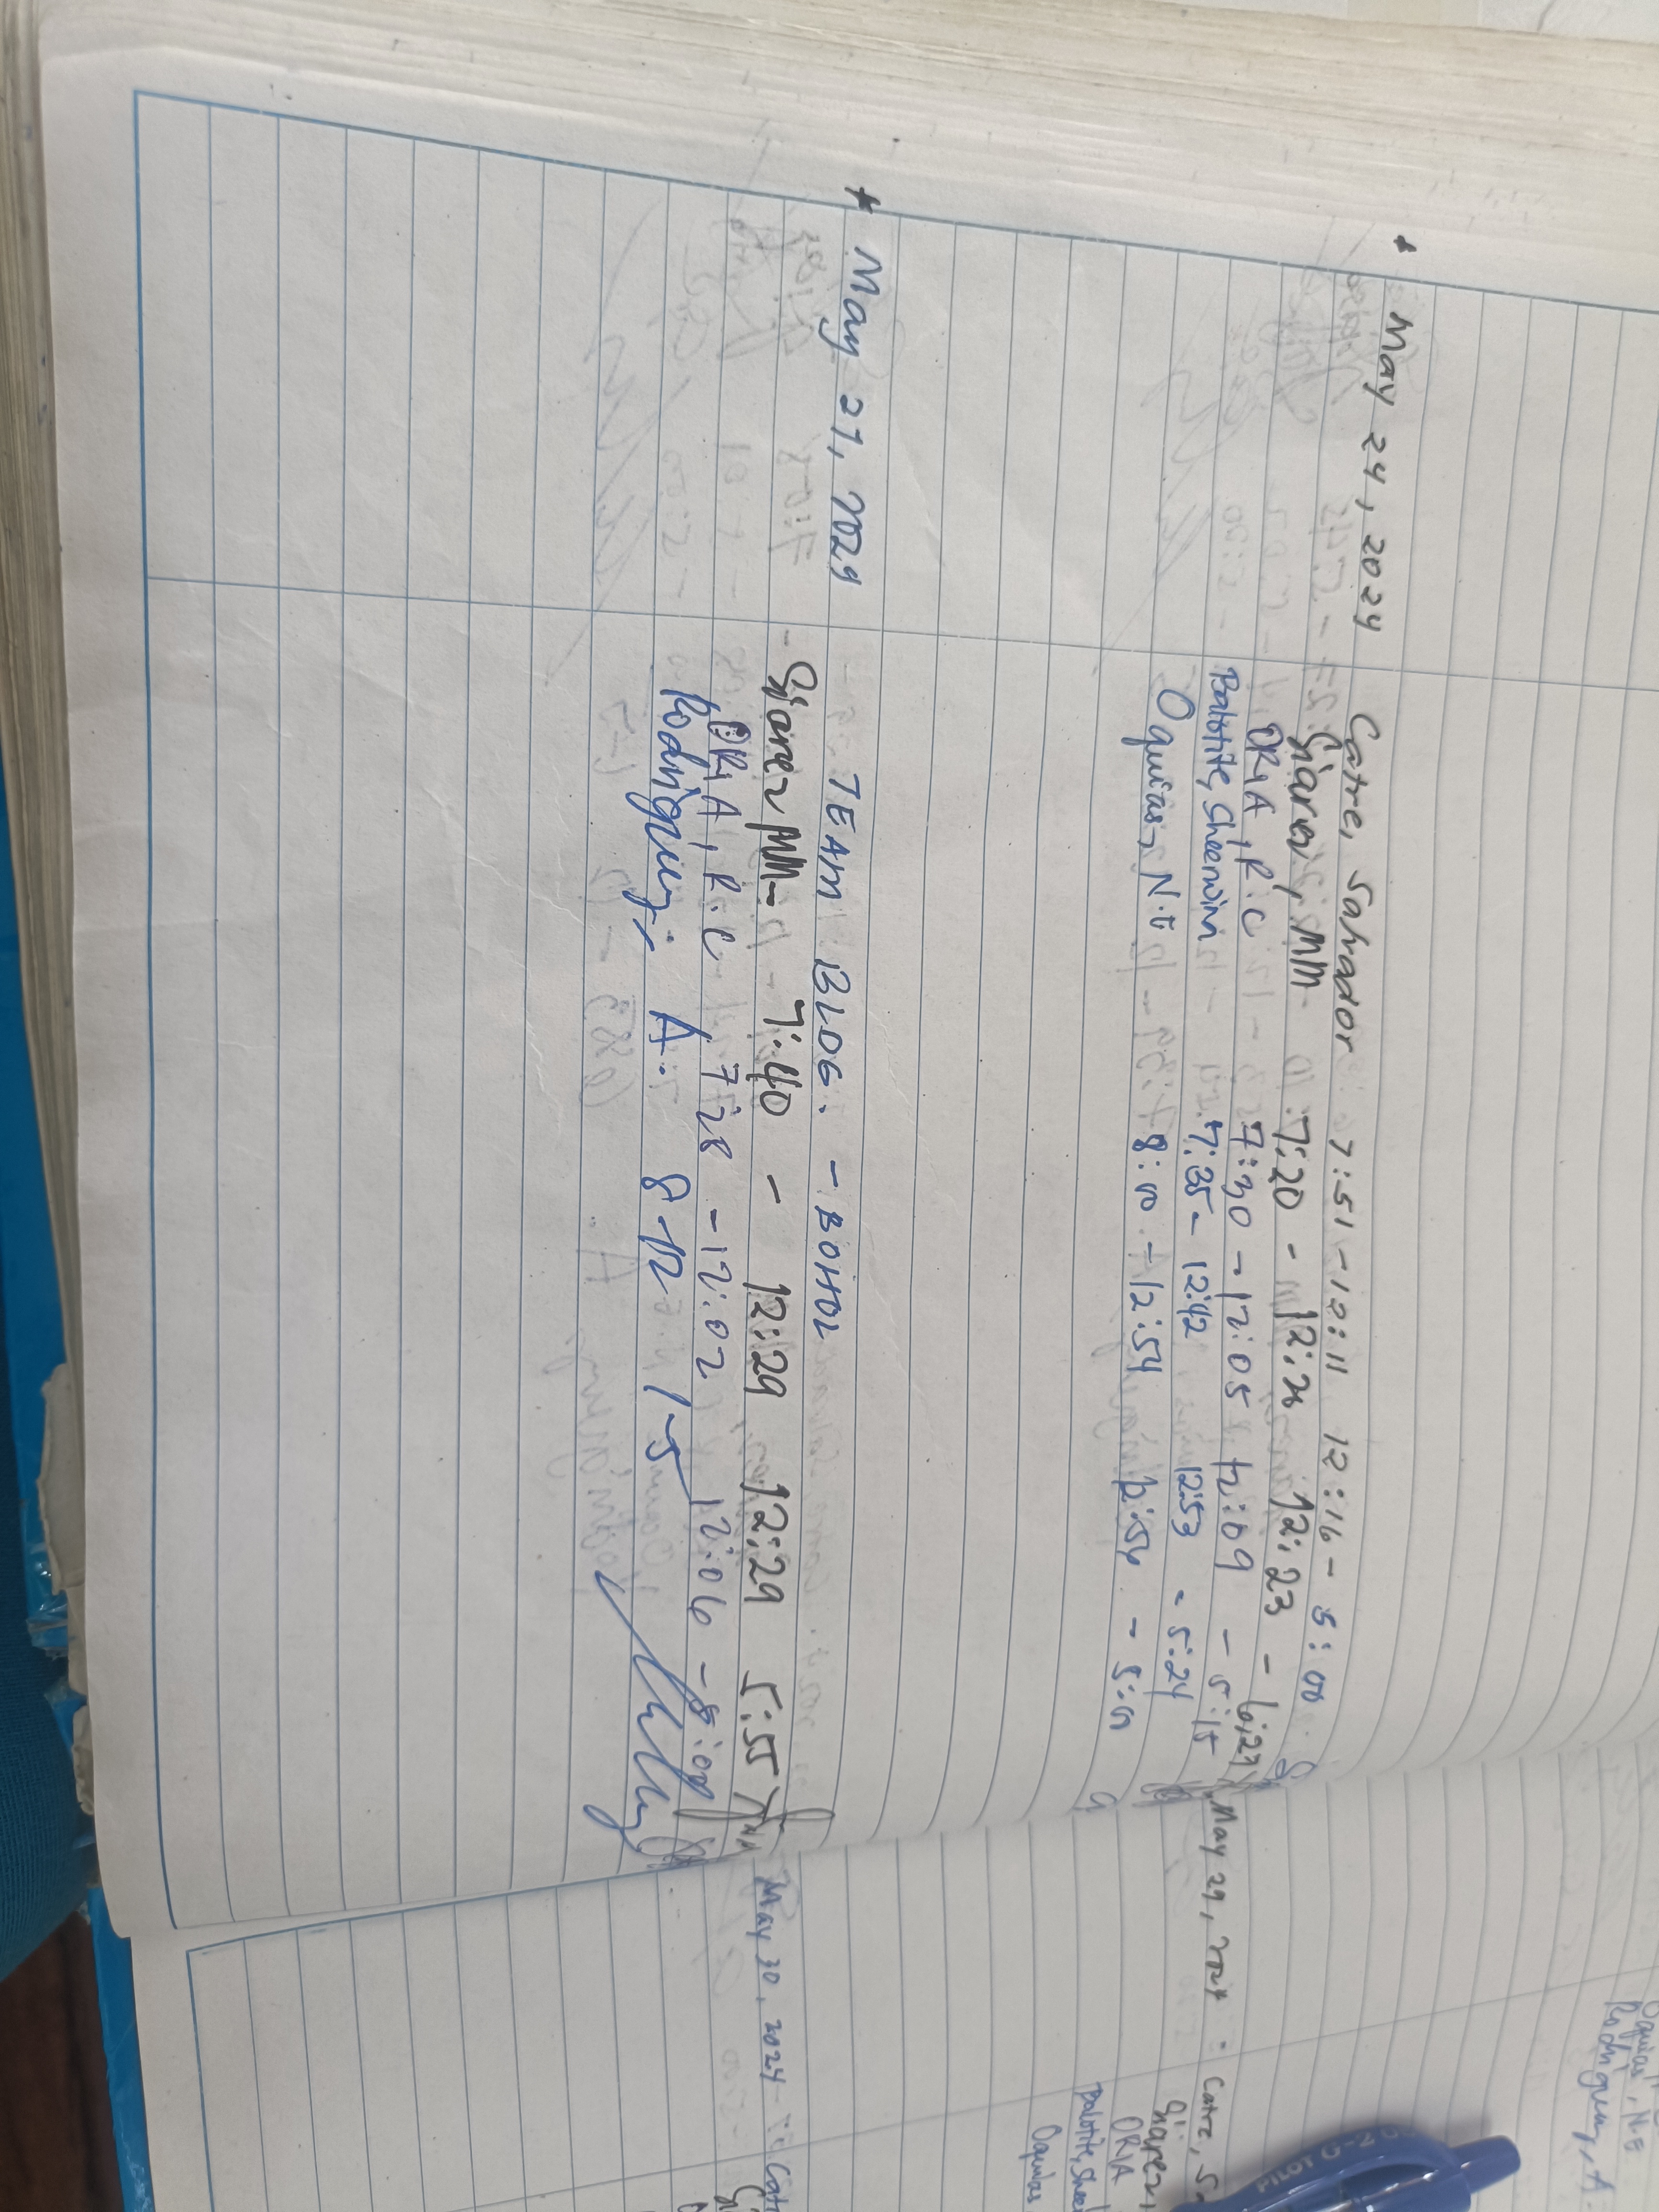 * May 24, 2024 Catre, Salvador 7:51 - 12:11 12:16 - 5:00
MM 7:20 - 12:23 -
ORIA, R.C 7:30 - 12:05 12:09 - 5:15
Balotite, Sheerwin 7:35 - 12:42 12:53 - 5:24
Oquias, N.E 8:00 - 12:54 12:56 - 5:00
* May 27, 2024 TEAM BLDG. - BOHOL
MM - 7:40 - 12:29 12:29 5:55
ORIA, R.C 7:28 - 12:02 12:06 - 5:00
Rodriguez, A. 8-12 1-5
May 29, 2024 - Catre, S
ORIA
Balotite, Shee
Oquias
May 30, 2024 - Cat
Oquias, N.E
Rodriguez, A
PILOT G-2